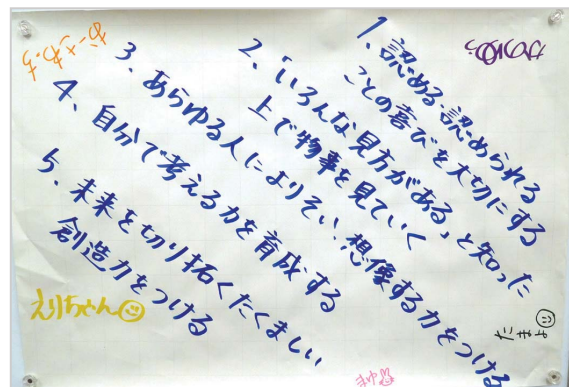 1、認める・認められる
ことの喜びを大切にする
2、「いろんな見方がある」と知った
上で物事を見ていく
3、あらゆる人によりそい、想像する力をつける
4、自分で考える力を育成する
5、未来を切り拓くたくましい
創造力をつける
えりちゃん
まゆ